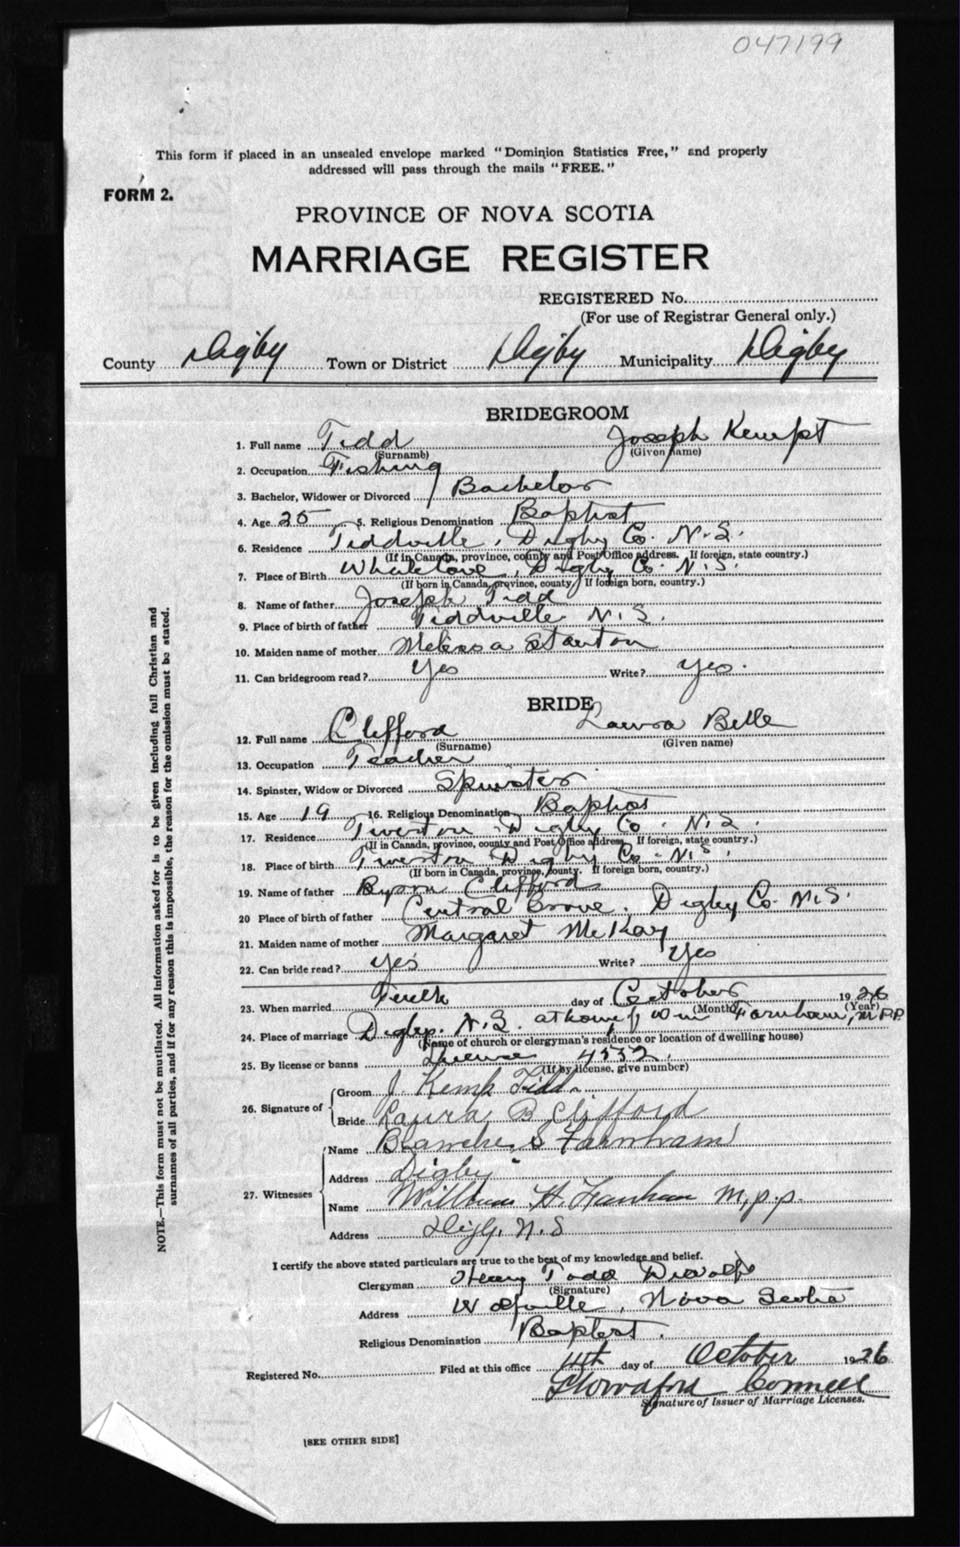 047199
This form if placed in an unsealed envelope marked "Dominion Statistics Free," and properly
addressed will pass through the mails "FREE."
FORM 2.
PROVINCE OF NOVA SCOTIA
MARRIAGE REGISTER
REGISTERED No.
(For use of Registrar General only.)
County Digby Town or District Digby Municipality Digby
BRIDEGROOM
1. Full name Tidd Joseph Kempt
(Surname) (Given name)
2. Occupation Fishing
3. Bachelor, Widower or Divorced Bachelor
4. Age 25 5. Religious Denomination Baptist
6. Residence Tiddville, Digby Co. N.S.
(If in Canada, province, county and Post Office address. If foreign, state country.)
7. Place of Birth Whale Cove, Digby Co. N.S.
(If born in Canada, province, county. If foreign born, country.)
8. Name of father Joseph Tidd
9. Place of birth of father Tiddville N.S.
10. Maiden name of mother Melissa Stanton
11. Can bridegroom read? Yes Write? Yes.
BRIDE
12. Full name Clifford Laura Belle
(Surname) (Given name)
13. Occupation Teacher
14. Spinster, Widow or Divorced Spinster
15. Age 19 16. Religious Denomination Baptist
17. Residence Tiverton Digby Co. N.S.
(If in Canada, province, county and Post Office address. If foreign, state country.)
18. Place of birth Tiverton Digby Co. N.S.
(If born in Canada, province, county. If foreign born, country.)
19. Name of father Byron Clifford
20 Place of birth of father Central Grove. Digby Co. N.S.
21. Maiden name of mother Margaret McKay
22. Can bride read? Yes Write? Yes
23. When married day of October 1926
(Month) (Year)
24. Place of marriage Digby. N.S. at home of Wm Farnham, M.P.P.
(Name of church or clergyman's residence or location of dwelling house)
25. By license or banns License 4532.
(If by license, give number)
26. Signature of Groom J. Kemp Tidd.
Bride Laura B. Clifford
27. Witnesses Name Blanche S Farnham
Address Digby
Name William H. Farnham M.p.p.
Address Digby. N.S
I certify the above stated particulars are true to the best of my knowledge and belief.
Clergyman Henry Todd DeWolfe
(Signature)
Address Wolfville, Nova Scotia
Religious Denomination Baptist.
Registered No. Filed at this office day of October 1926
Connell
Signature of Issuer of Marriage Licenses.
[SEE OTHER SIDE]
NOTE.—This form must not be mutilated. All information asked for is to be given including full Christian and
surnames of all parties, and if for any reason this is impossible, the reason for the omission must be stated.